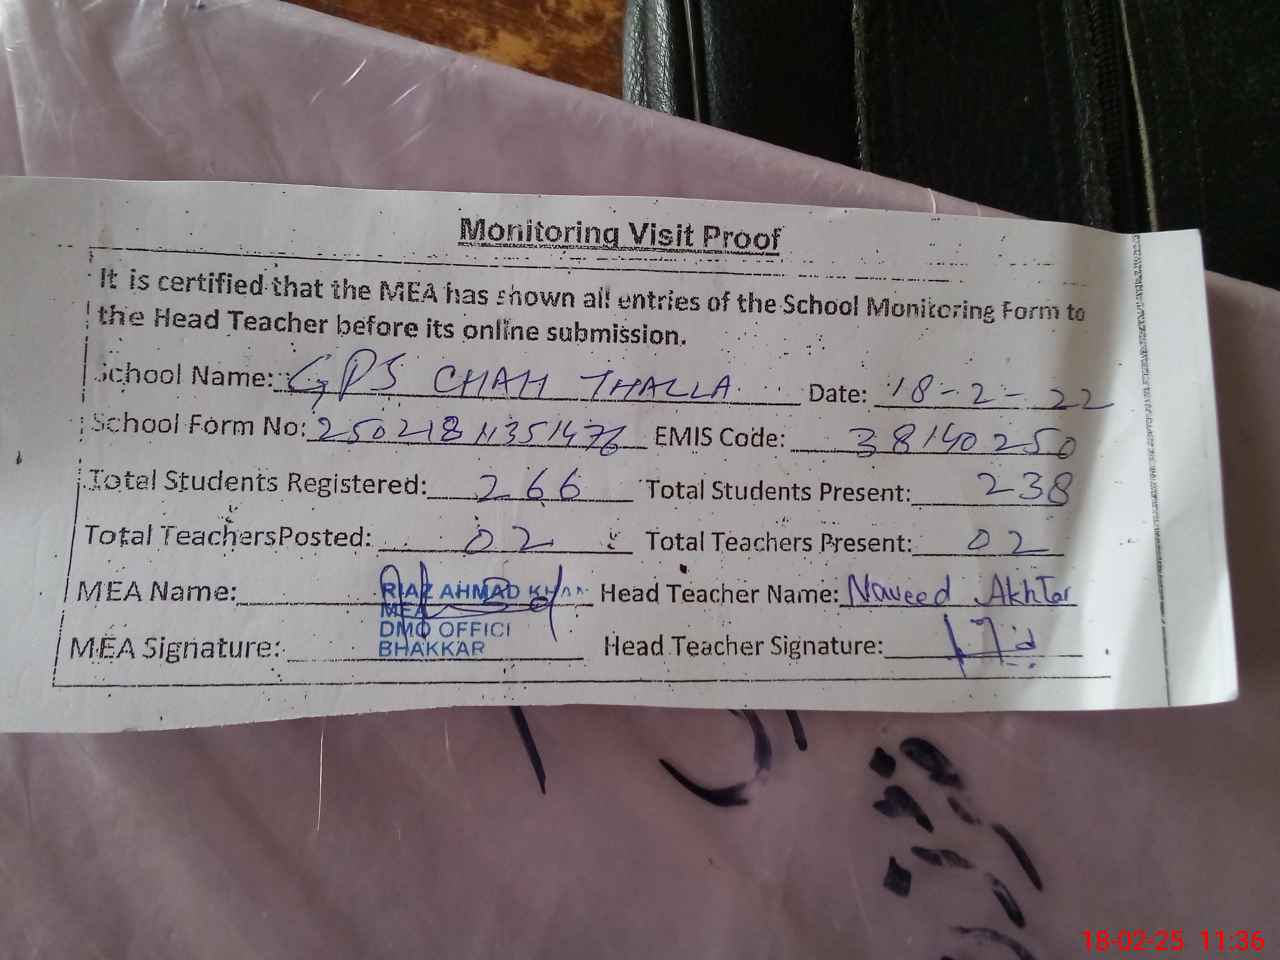 Monitoring Visit Proof
It is certified that the MEA has shown all entries of the School Monitoring Form to
the Head Teacher before its online submission.
School Name: GPS CHAH THALLA Date: 18-2-22
School Form No: 25021811351476 EMIS Code: 38140250
Total Students Registered: 266 Total Students Present: 238
Total TeachersPosted: 02 Total Teachers Present: 02
MEA Name: RIAZ AHMAD KHAN Head Teacher Name: Naveed Akhtar
MEA
DMO OFFICE
MEA Signature: BHAKKAR Head Teacher Signature:
18-02-25 11:36